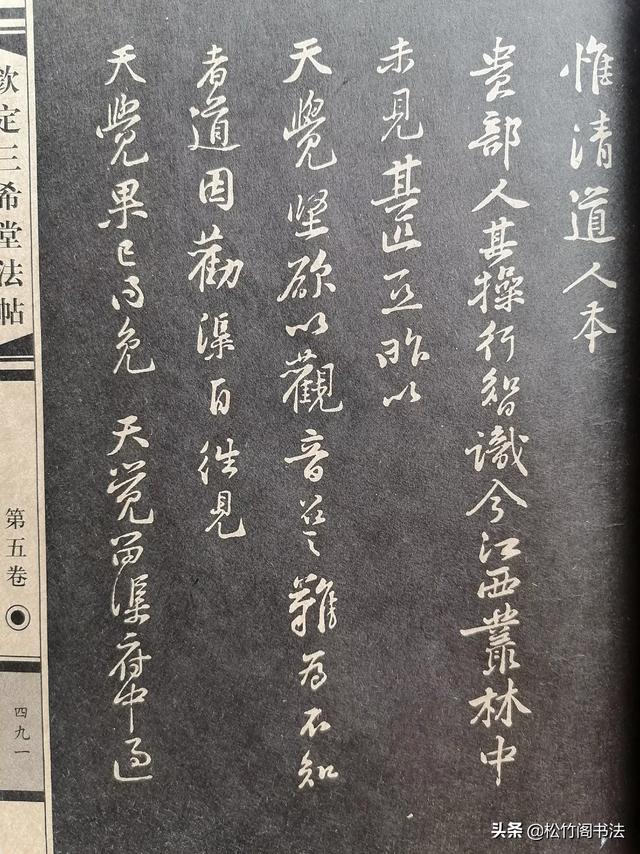 惟清道人本
貴部人其操行智識今江西叢林中
未見其匹亞昨以
天覺堅欲以觀音召之難為不知
者道因勸渠自往見
天覺果已得免天覺留渠府中過
欽定三希堂法帖
第五卷
四九一
头条 @松竹阁书法